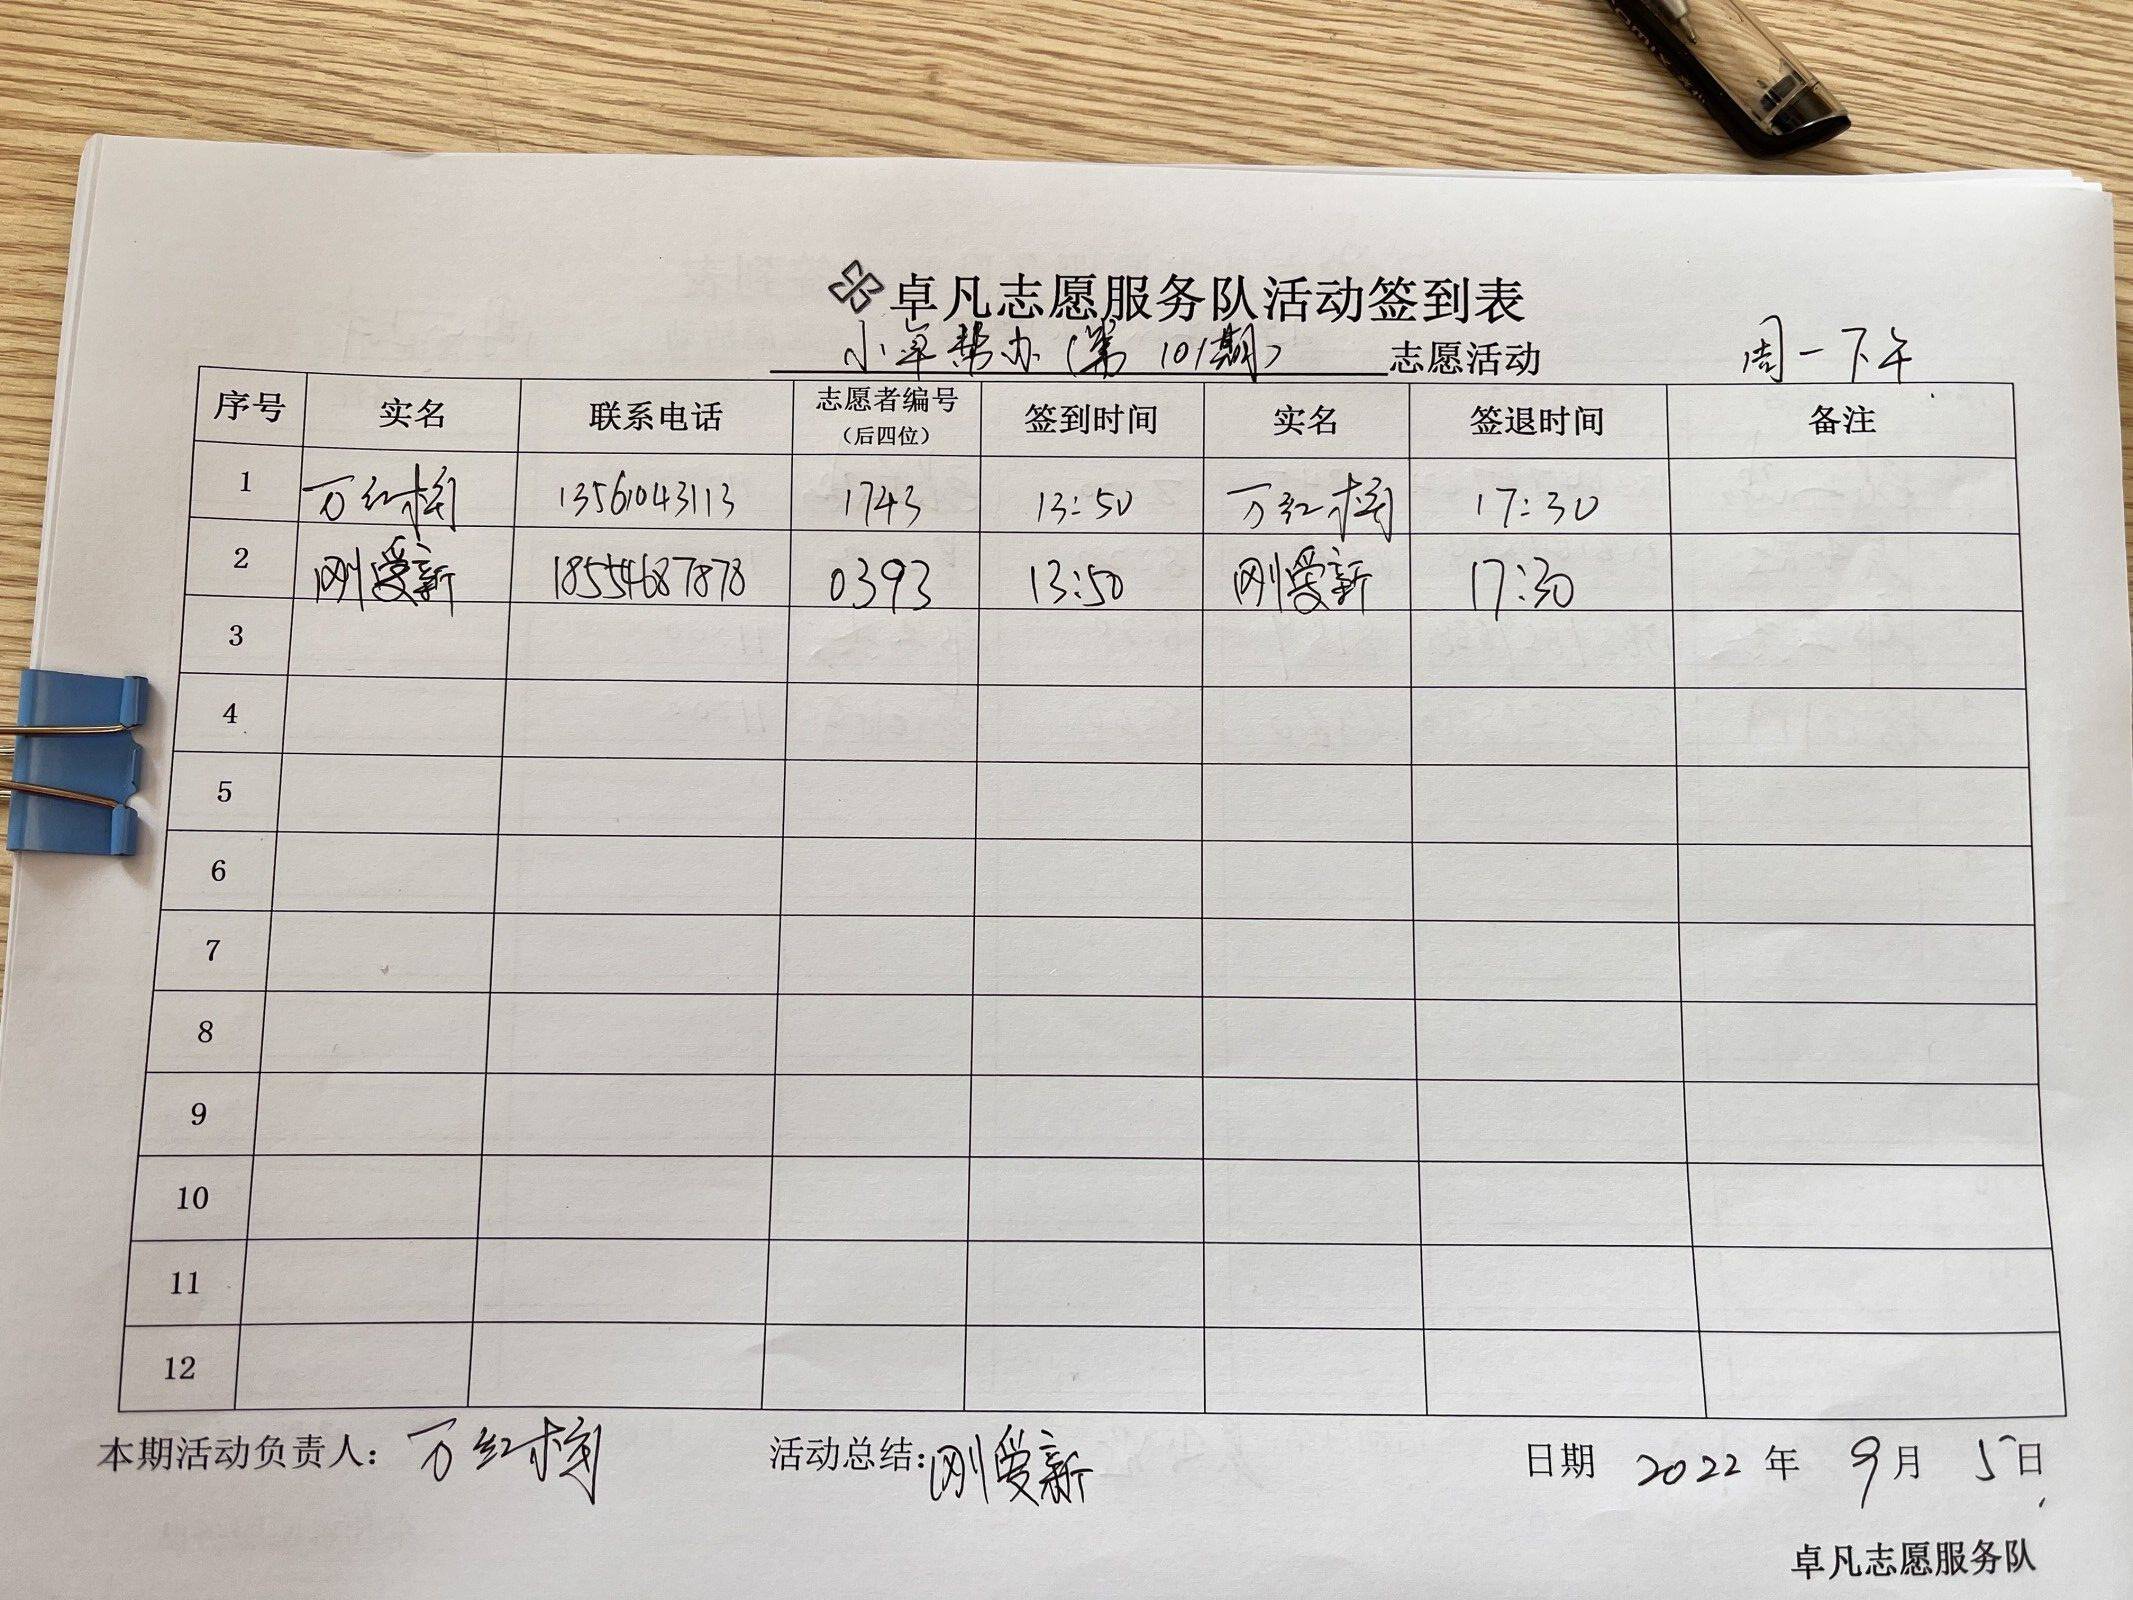 卓凡志愿服务队活动签到表
小卓帮办（第101期）志愿活动 周一下午
序号 实名 联系电话 志愿者编号（后四位） 签到时间 实名 签退时间 备注
1 万红梅 13561043113 1743 13:50 万红梅 17:30
2 刚爱新 18554687878 0393 13:50 刚爱新 17:30
3
4
5
6
7
8
9
10
11
12
本期活动负责人：万红梅 活动总结：刚爱新 日期 2022年9月5日
卓凡志愿服务队